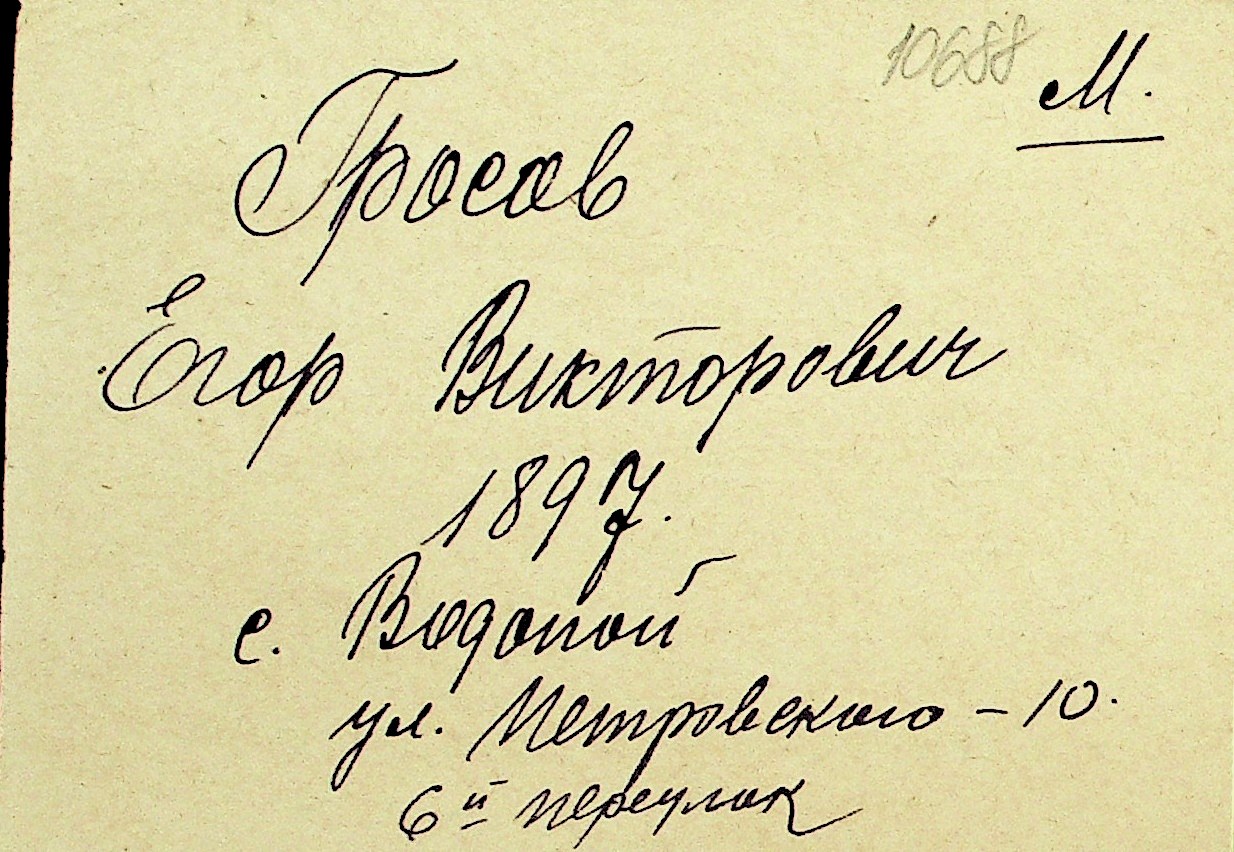 10688
М.
Гросов
Егор Викторович
1897.
с. Водопой
ул. Петровского - 10.
6й переулок